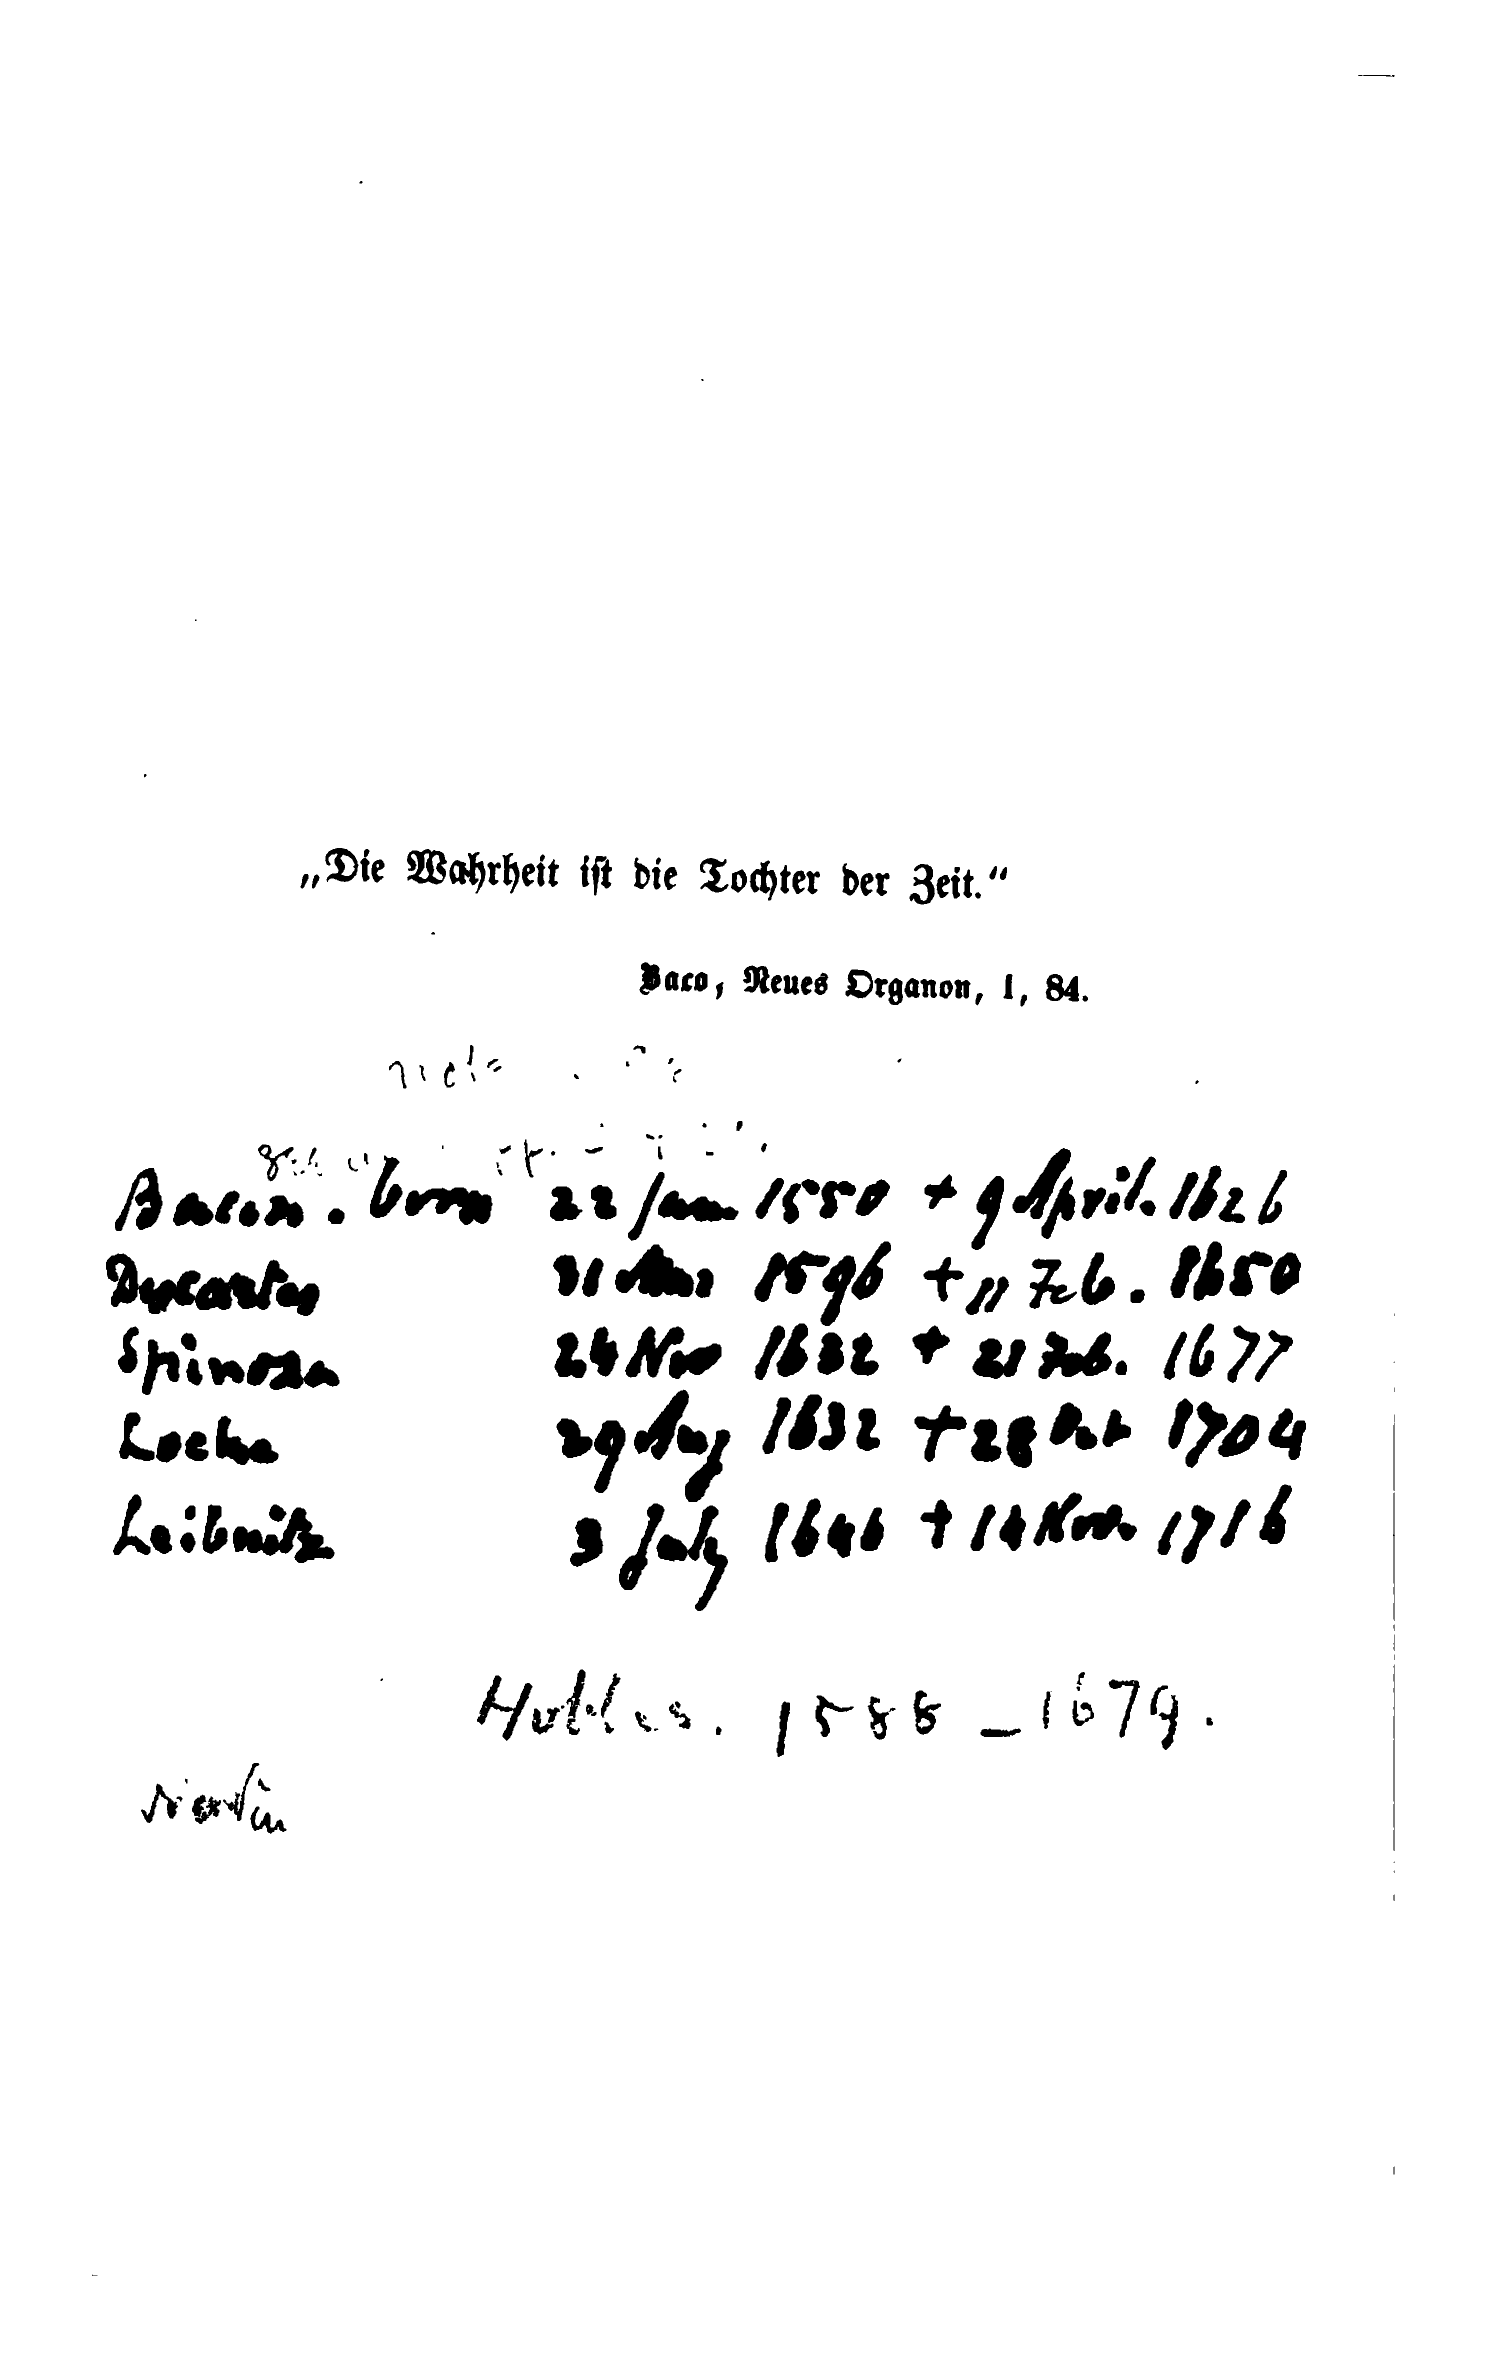 „Die Wahrheit ist die Tochter der Zeit.“
Baco, Neues Organon, I, 84.
Bacon. born 22 Jan. 1550 + 9 April. 1626
Descartes 31 Mar 1596 + 11 Feb. 1650
Spinoza 24 Nov 1632 + 21 Feb. 1677
Locke 29 Aug 1632 + 28 Oct 1704
Leibnitz 3 July 1646 + 14 Nov. 1716
Hobbes. 1588 – 1679.